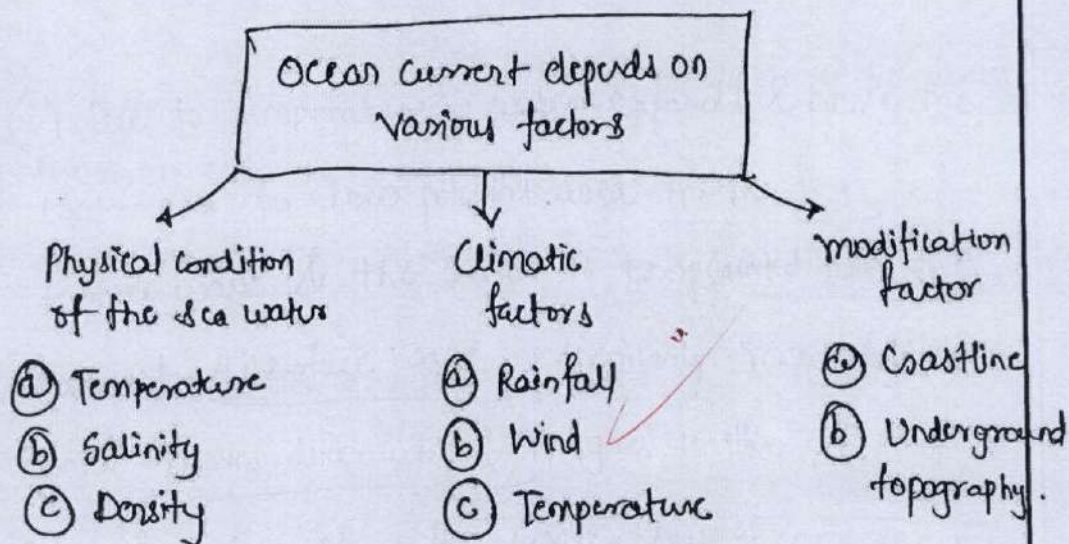 Ocean current depends on
various factors
Physical condition
of the sea water
(a) Temperature
(b) Salinity
(c) Density
Climatic
factors
(a) Rainfall
(b) Wind
(c) Temperature
modification
factor
(a) Coastline
(b) Underground
topography.